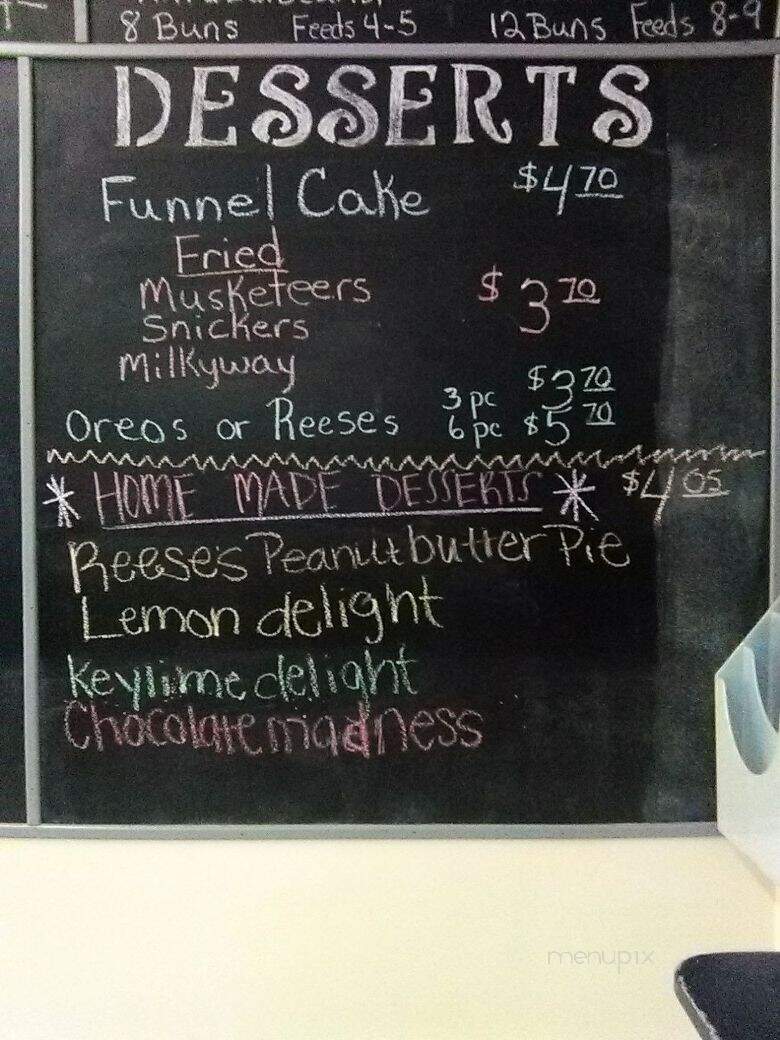 8 Buns Feeds 4-5 12 Buns Feeds 8-9
DESSERTS
Funnel Cake $4 70
Fried
Musketeers $3 70
Snickers
Milkyway
Oreos or Reeses 3 pc $3 70
6 pc $5 70
* HOME MADE DESSERTS * $4 05
Reese's Peanut butter Pie
Lemon delight
Keylime delight
Chocolate madness
menupix